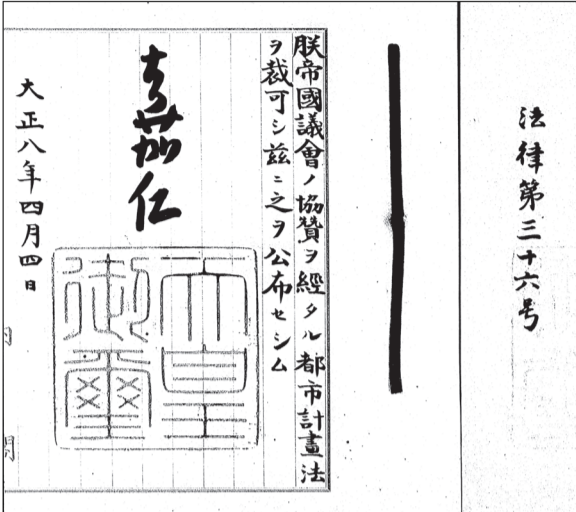 法律第三十六号
朕帝國議會ノ協贊ヲ經タル都市計畫法
ヲ裁可シ茲ニ之ヲ公布セシム
嘉仁
天皇
御璽
大正八年四月四日